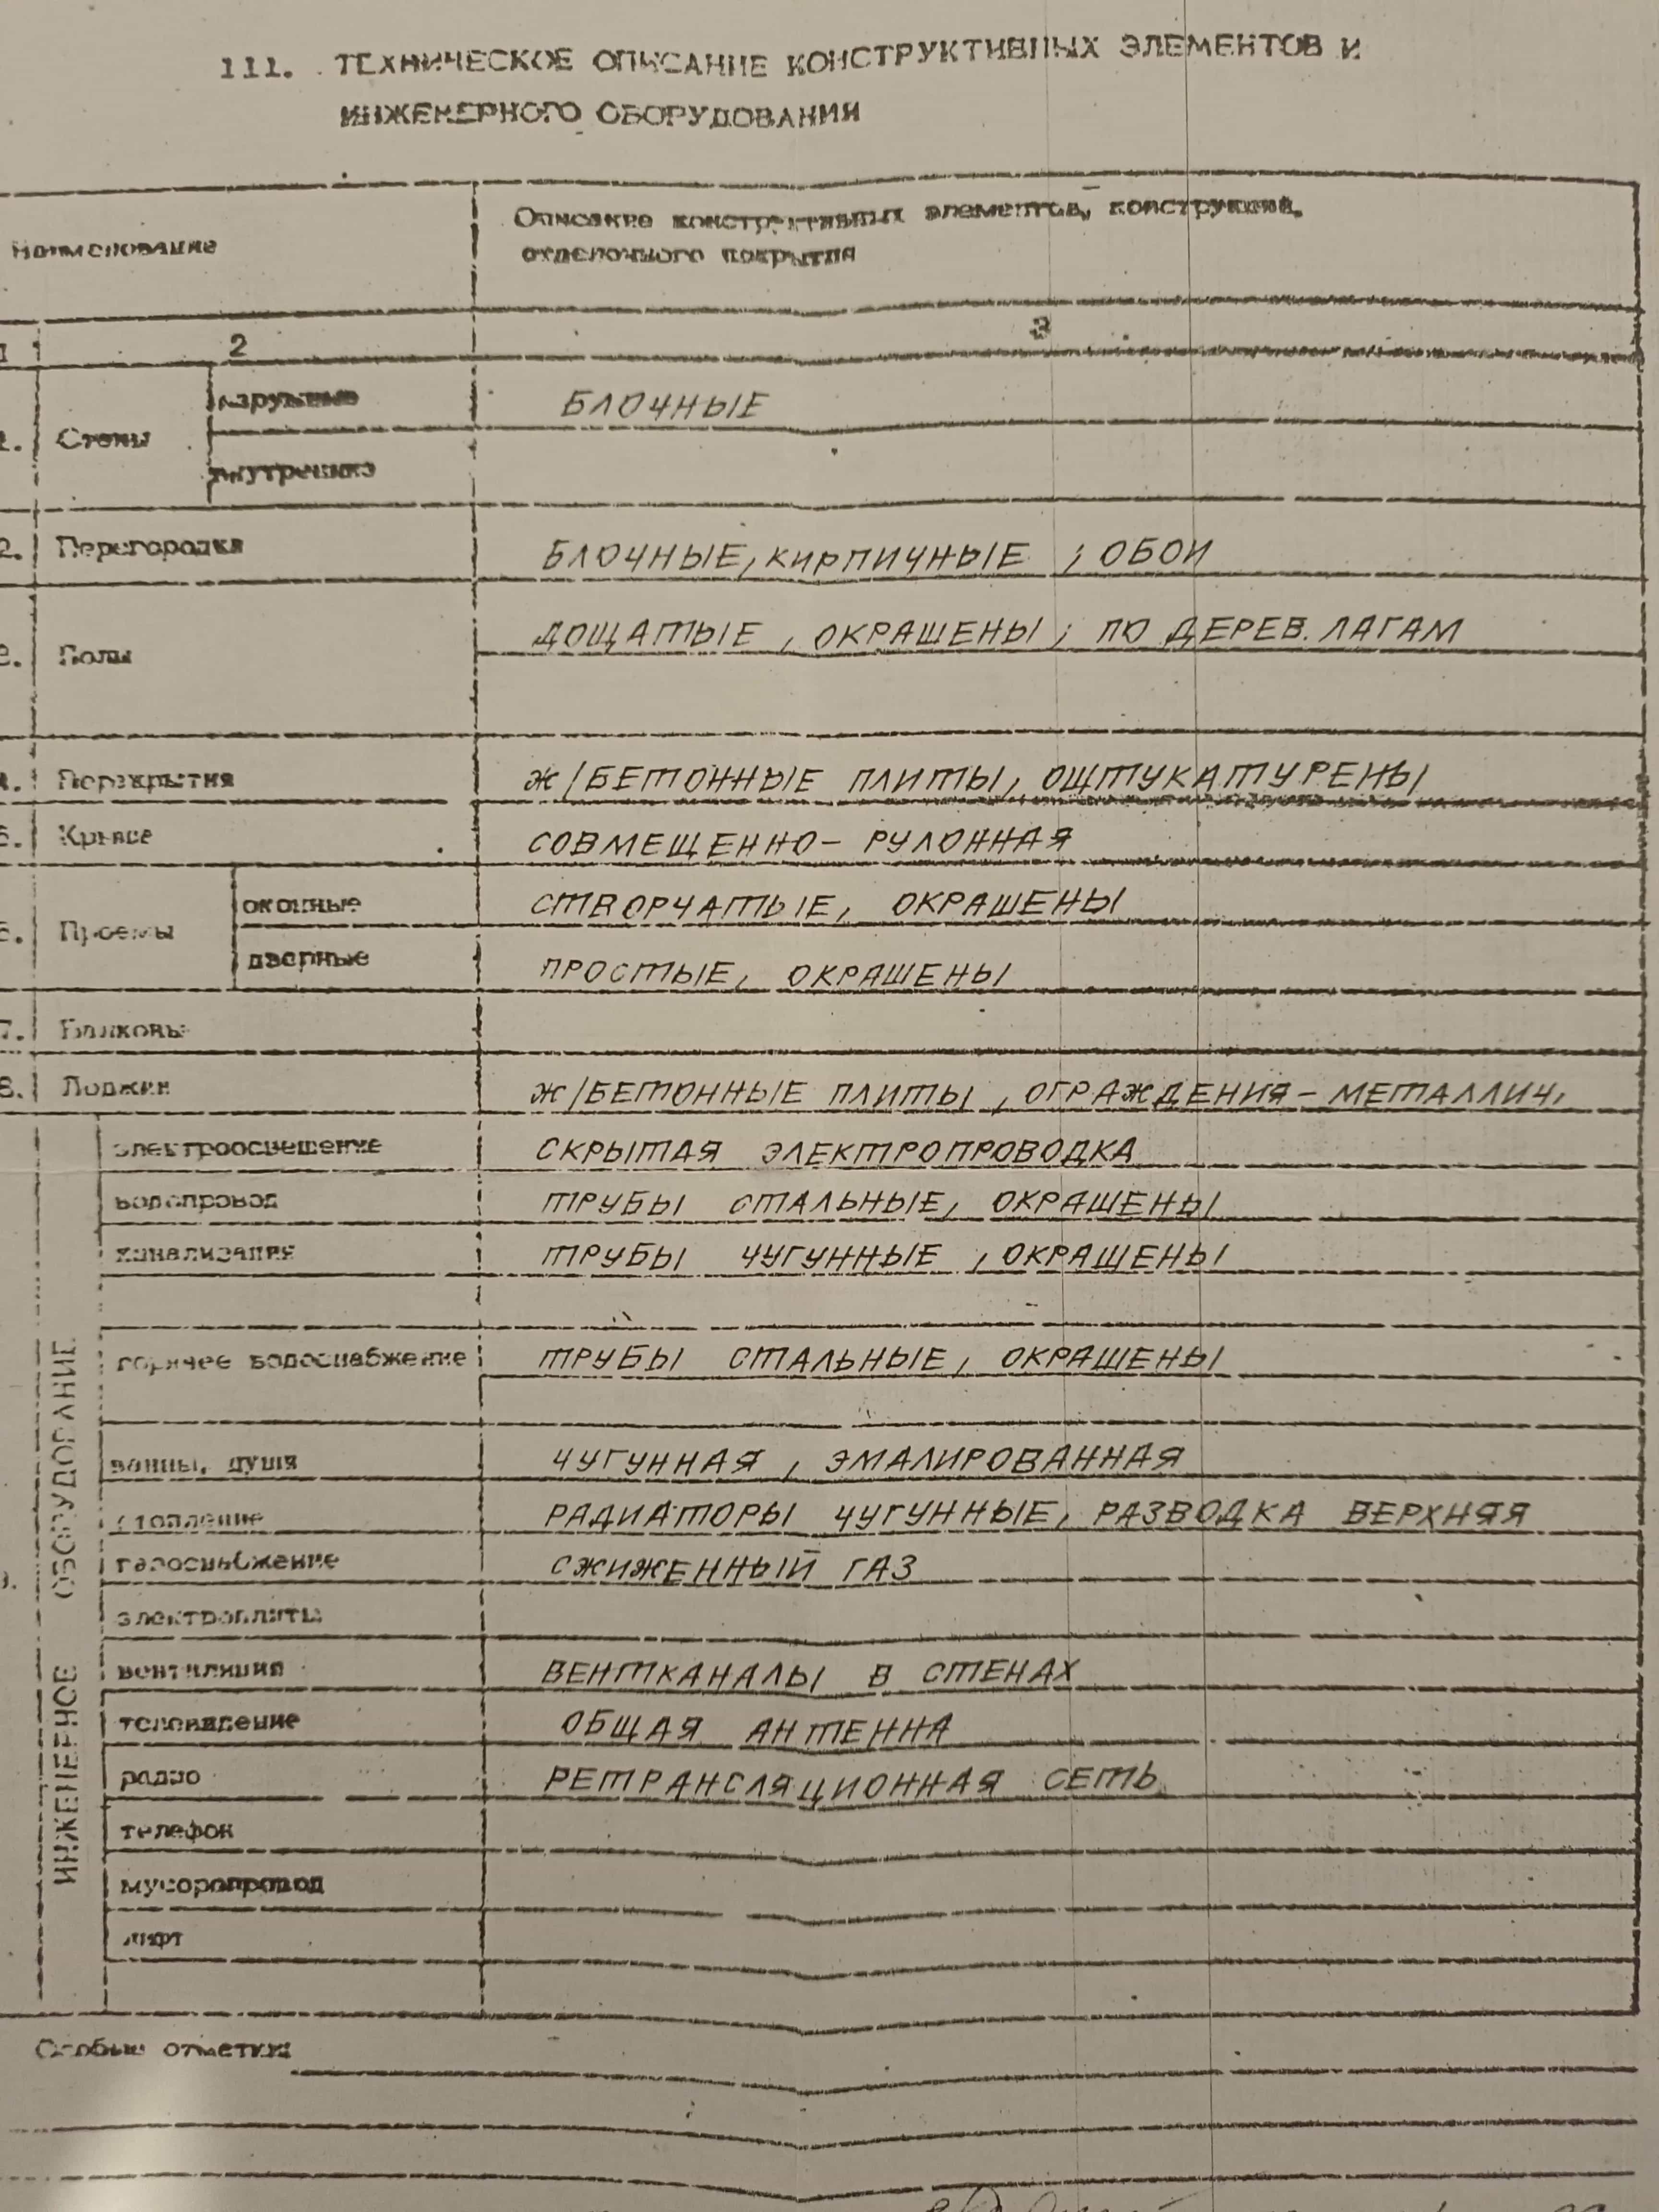 111. ТЕХНИЧЕСКОЕ ОПИСАНИЕ КОНСТРУКТИВНЫХ ЭЛЕМЕНТОВ И
ИНЖЕНЕРНОГО ОБОРУДОВАНИЯ
Наименование
Описание конструктивных элементов, конструкций,
отделочного покрытия
1 2 3
1. Стены
наружные БЛОЧНЫЕ
внутренние
2. Перегородки БЛОЧНЫЕ, КИРПИЧНЫЕ ; ОБОИ
3. Полы ДОЩАТЫЕ, ОКРАШЕНЫ; ПО ДЕРЕВ. ЛАГАМ
4. Перекрытия Ж/БЕТОННЫЕ ПЛИТЫ, ОЩТУКАТУРЕНЫ
5. Крыша СОВМЕЩЕННО- РУЛОННАЯ
6. Проемы
оконные СТВОРЧАТЫЕ, ОКРАШЕНЫ
дверные ПРОСТЫЕ, ОКРАШЕНЫ
7. Балконы
8. Лоджии Ж/БЕТОННЫЕ ПЛИТЫ, ОГРАЖДЕНИЯ- МЕТАЛЛИЧ.
9. ИНЖЕНЕРНОЕ ОБОРУДОВАНИЕ
электроосвещение СКРЫТАЯ ЭЛЕКТРОПРОВОДКА
водопровод ТРУБЫ СТАЛЬНЫЕ, ОКРАШЕНЫ
канализация ТРУБЫ ЧУГУННЫЕ, ОКРАШЕНЫ
горячее водоснабжение ТРУБЫ СТАЛЬНЫЕ, ОКРАШЕНЫ
ванны, душа ЧУГУННАЯ, ЭМАЛИРОВАННАЯ
отопление РАДИАТОРЫ ЧУГУННЫЕ, РАЗВОДКА ВЕРХНЯЯ
газоснабжение СЖИЖЕННЫЙ ГАЗ
электроплиты
вентиляция ВЕНТКАНАЛЫ В СТЕНАХ
телевидение ОБЩАЯ АНТЕННА
радио РЕТРАНСЛЯЦИОННАЯ СЕТЬ
телефон
мусоропровод
лифт
Особые отметки